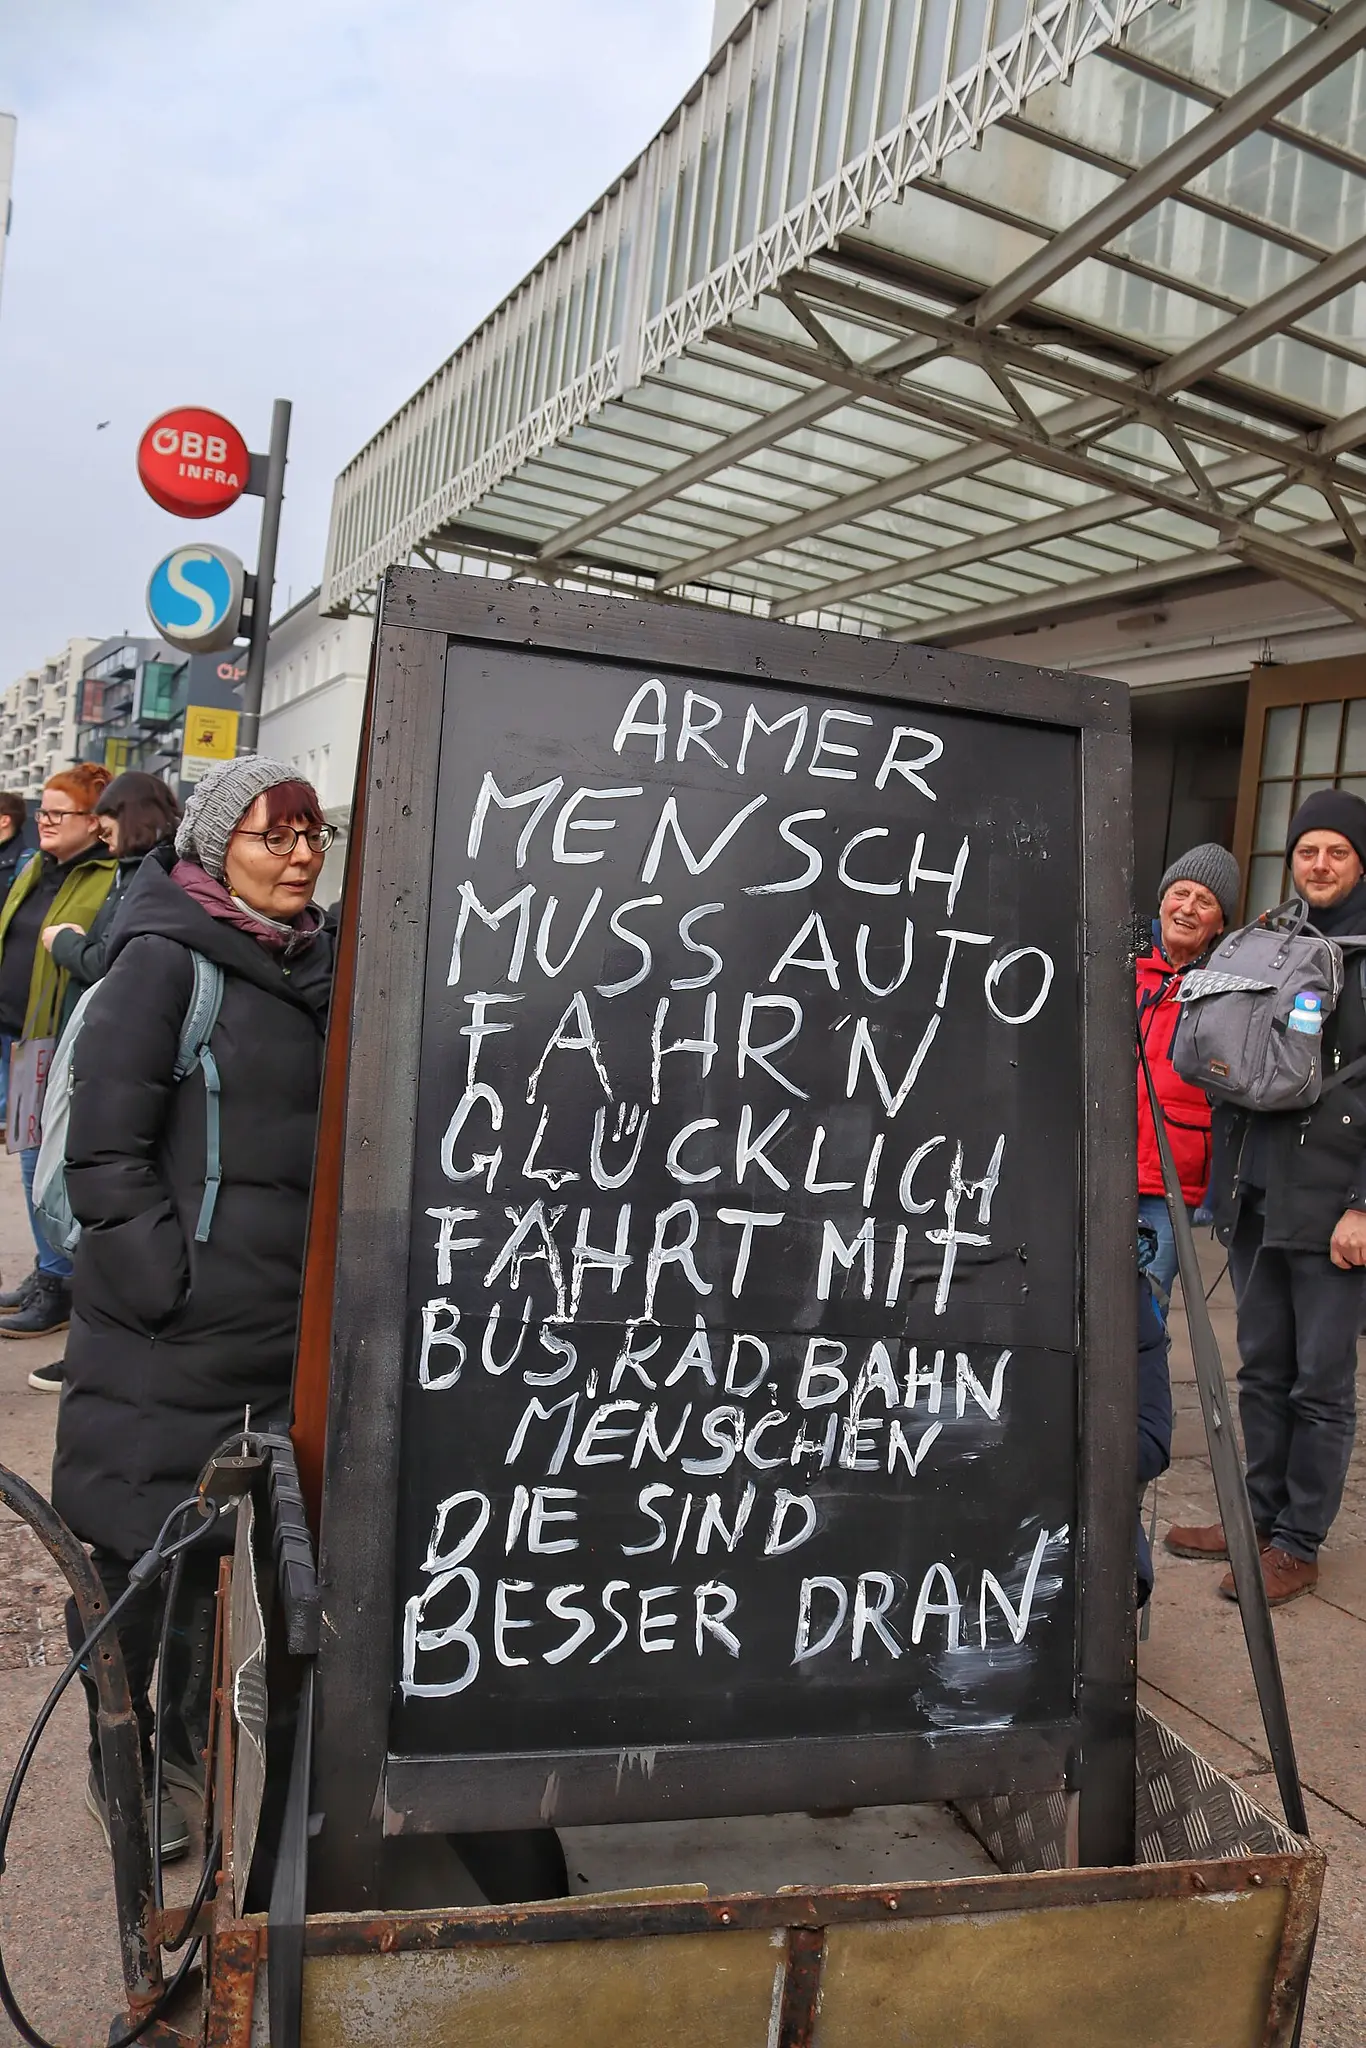 ÖBB
INFRA
S
ARMER
MENSCH
MUSS AUTO
FAHR'N
GLÜCKLICH
FÄHRT MIT
BUS, RAD, BAHN
MENSCHEN
DIE SIND
BESSER DRAN